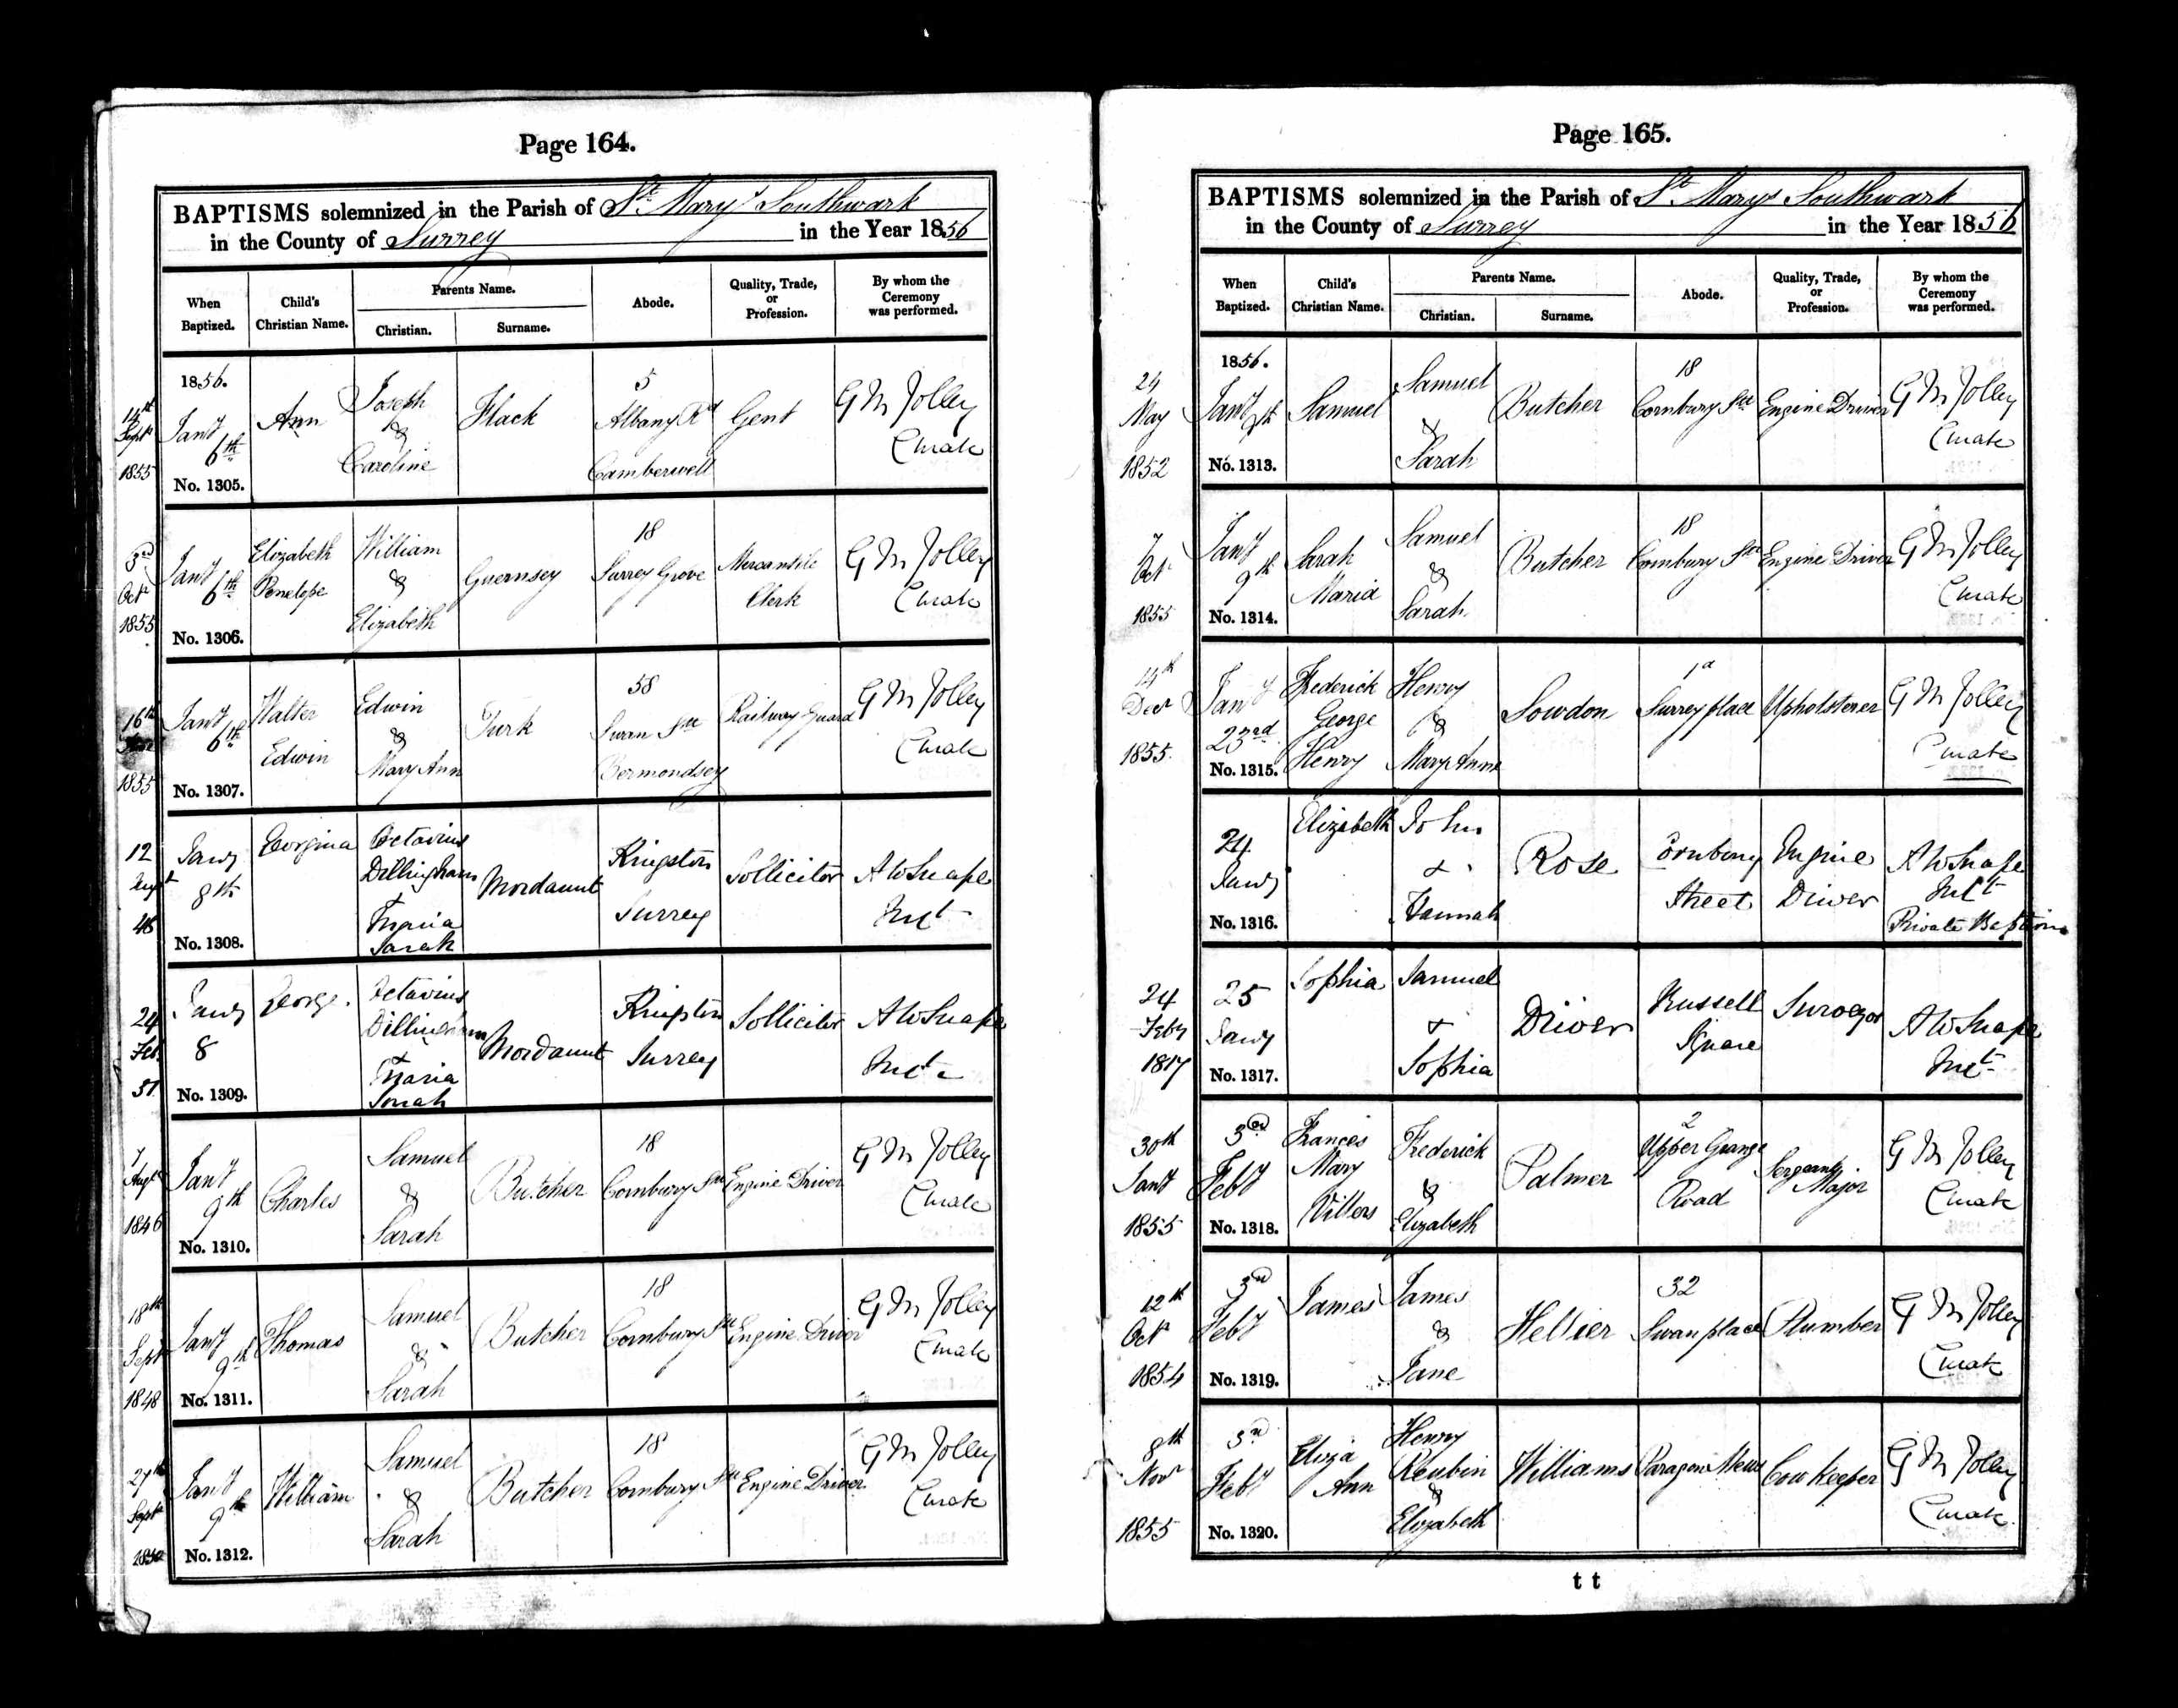 Page 164.
BAPTISMS solemnized in the Parish of St. Mary's Southwark
in the County of Surrey in the Year 1856
When Baptized.
Child's Christian Name.
Parents Name.
Christian.
Surname.
Abode.
Quality, Trade, or Profession.
By whom the Ceremony was performed.
14th Septr 1855
1856.
Jany 6th
No. 1305.
Ann
Joseph & Caroline
Flack
5 Albany Rd Camberwell
Gent
G M Jolley Curate
3rd Octr 1855
Jany 6th
No. 1306.
Elizabeth Penelope
William & Elizabeth
Guernsey
18 Surrey Grove
Mercantile Clerk
G M Jolley Curate
16th 1855
Jany 6th
No. 1307.
Walter Edwin
Edwin & Mary Ann
Turk
58 Swan Stt Bermondsey
Railway Guard
G M Jolley Curate
12 Augt 48
Jany 8th
No. 1308.
Georgina
Octavius Dillingham Maria Sarah
Mordaunt
Kingston Surrey
Sollicitor
A W Snape Inct
24 Feb. 51
Jany 8
No. 1309.
George.
Octavius Dillingham Maria Sarah
Mordaunt
Kingston Surrey
Sollicitor
A W Snape Inct
7 Augt 1846
Jany 9th
No. 1310.
Charles
Samuel & Sarah
Butcher
18 Cornbury Stt
Engine Driver
G M Jolley Curate
18th Sept 1848
Jany 9th
No. 1311.
Thomas
Samuel & Sarah
Butcher
18 Cornbury Stt
Engine Driver
G M Jolley Curate
27th Septr 1850
Jany 9th
No. 1312.
William
Samuel & Sarah
Butcher
18 Cornbury Stt
Engine Driver
G M Jolley Curate
Page 165.
BAPTISMS solemnized in the Parish of St. Mary's Southwark
in the County of Surrey in the Year 1856
When Baptized.
Child's Christian Name.
Parents Name.
Christian.
Surname.
Abode.
Quality, Trade, or Profession.
By whom the Ceremony was performed.
24 May 1852
1856.
Jany 9th
No. 1313.
Samuel
Samuel & Sarah
Butcher
18 Cornbury Stt
Engine Driver
G M Jolley Curate
7 Octr 1855
Jany 9th
No. 1314.
Sarah Maria
Samuel & Sarah
Butcher
18 Cornbury Stt
Engine Driver
G M Jolley Curate
14th Decr 1855
Jany 23rd
No. 1315.
Frederick George Henry
Henry & Mary Anne
Sowdon
1a Surrey place
Upholsterer
G M Jolley Curate
24 Jany
No. 1316.
Elizabeth
John & Hannah
Rose
Cornbury Street
Engine Driver
A W Snape Inct
Private Baptism
24 Feby 1817
25 Jany
No. 1317.
Sophia
Samuel & Sophia
Driver
Russell Square
Surveyor
A W Snape Inct
30th Jany 1855
3rd Feby
No. 1318.
Frances Mary Villers
Frederick & Elizabeth
Palmer
2 Upper Grange Road
Sergeant Major
G M Jolley Curate
12th Octr 1854
3rd Feby
No. 1319.
James
James & Jane
Hellier
32 Swan place
Plumber
G M Jolley Curate
8th Novr 1855
3rd Feby
No. 1320.
Eliza Ann
Henry Reubin & Elizabeth
Williams
Paragon Mews
Cow Keeper
G M Jolley Curate
t t